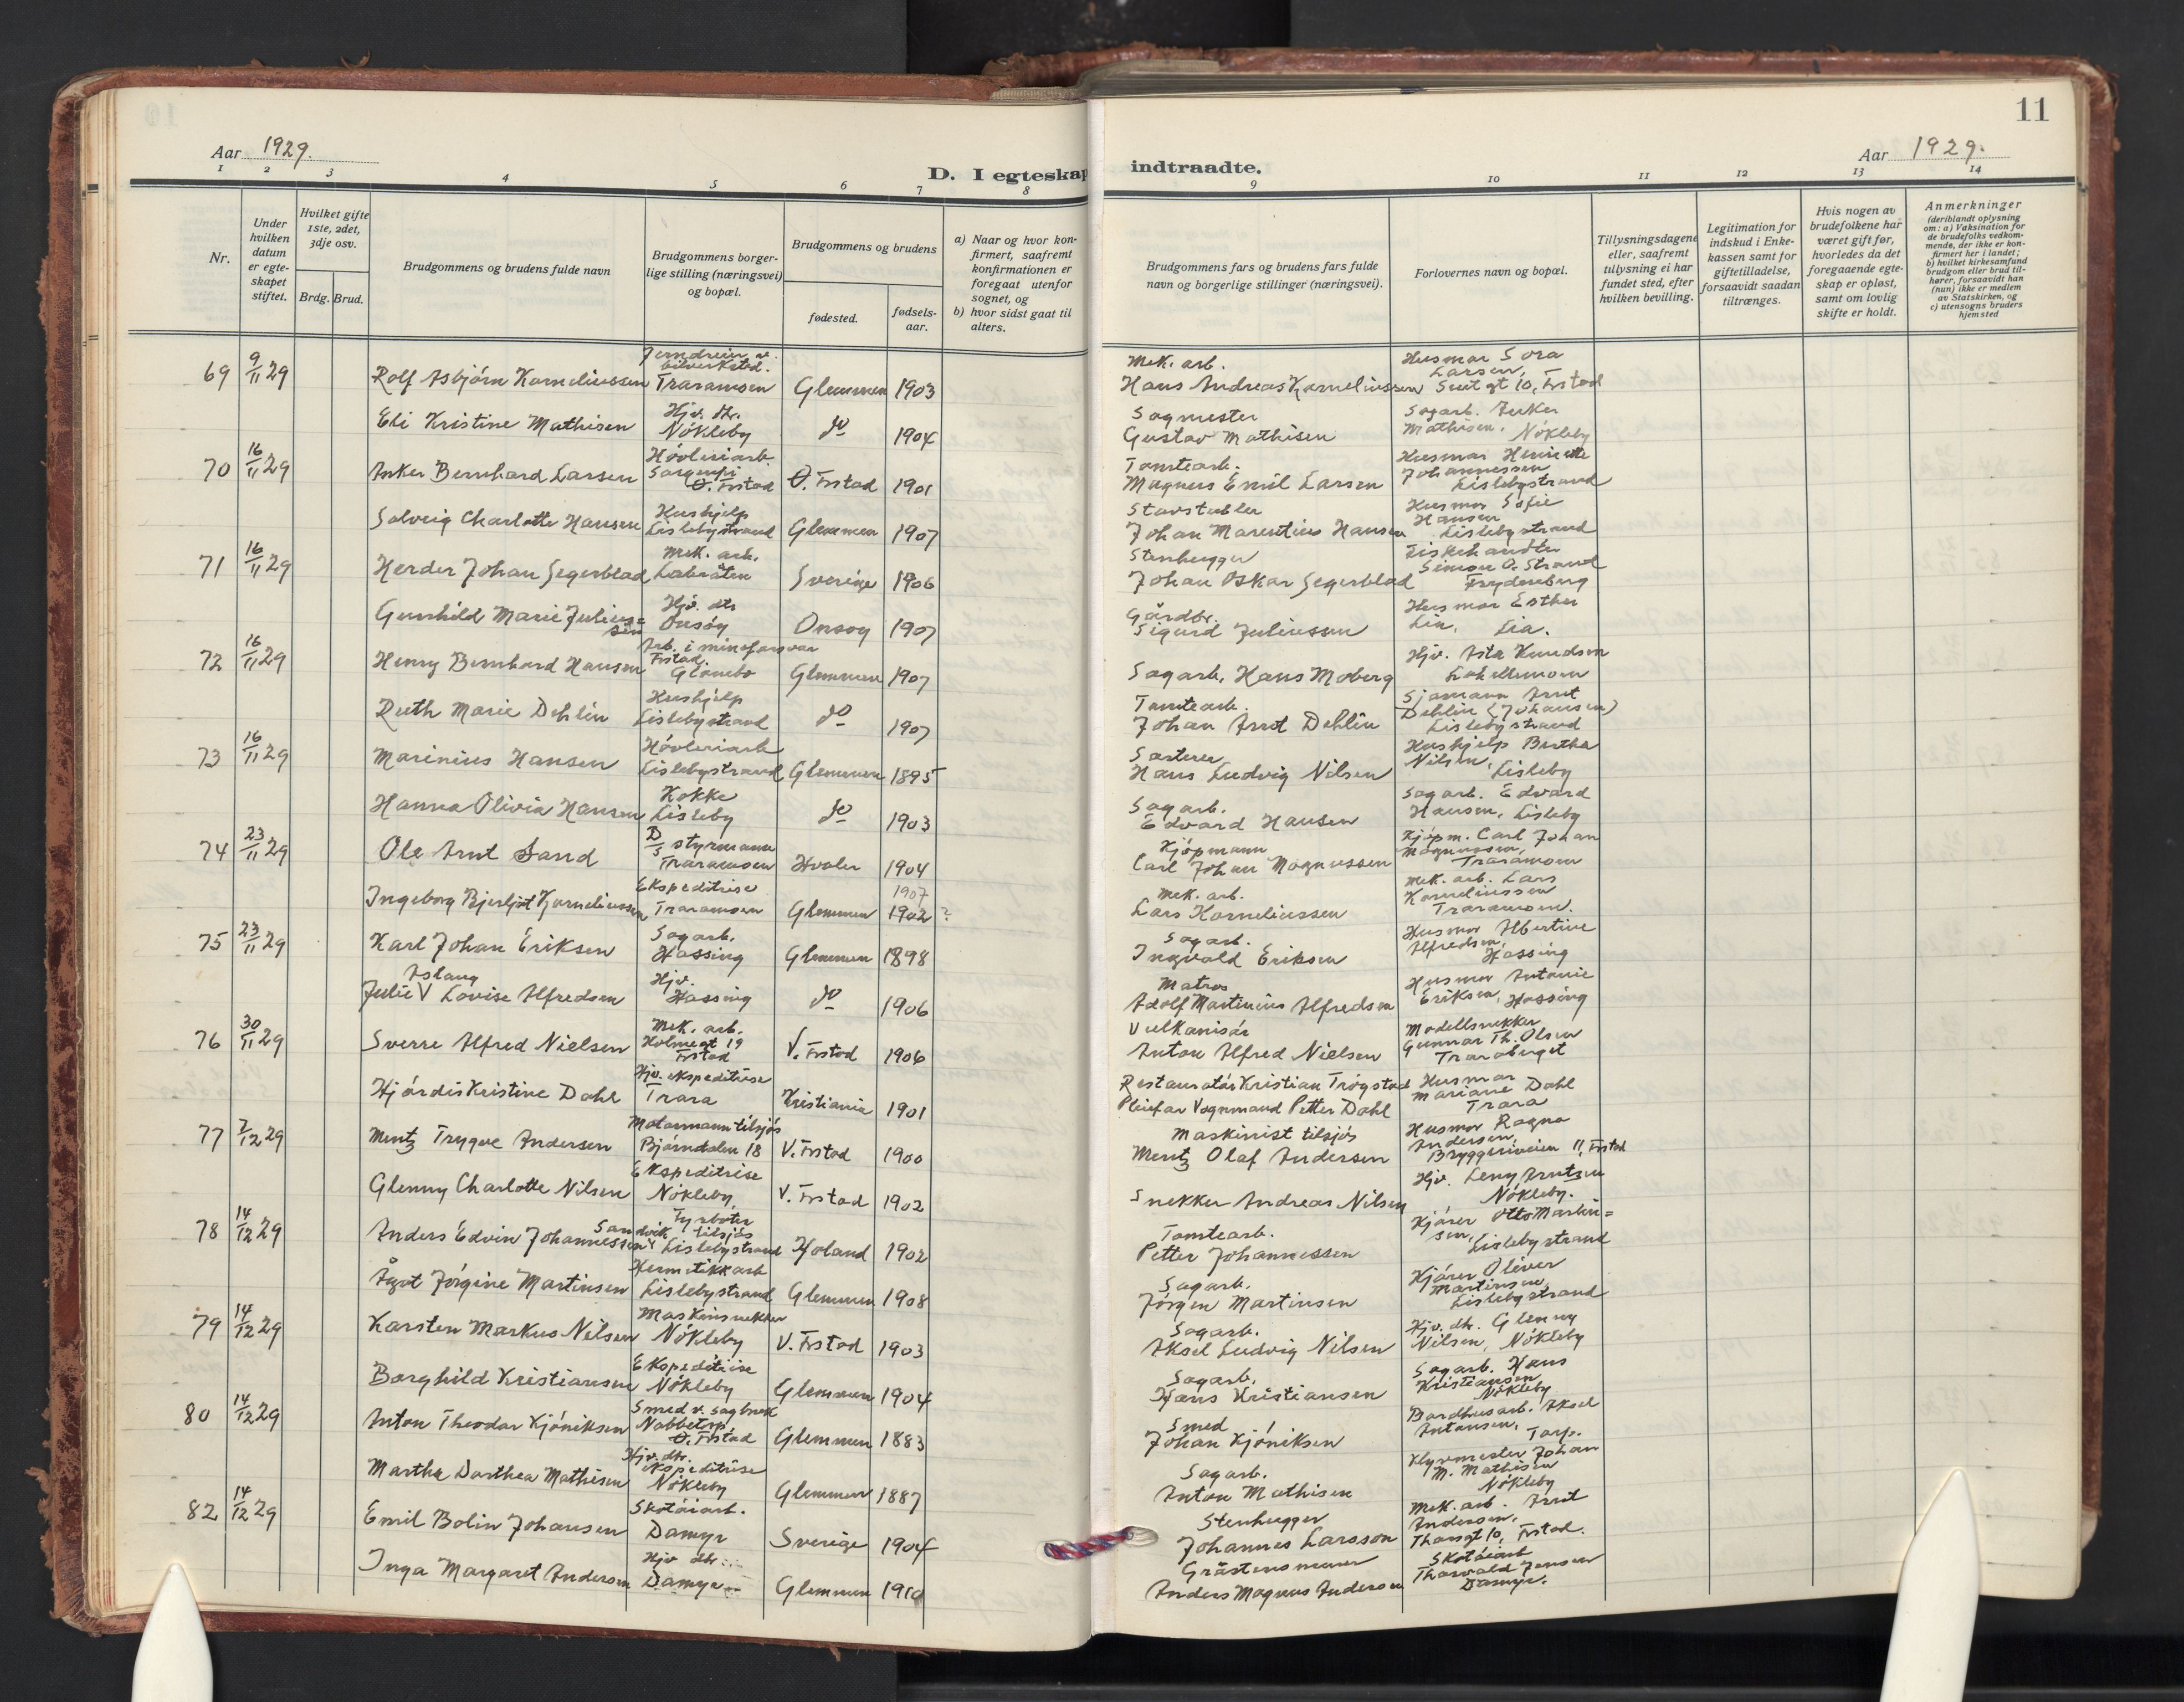 11
Aar 1929.
Aar 1929.
D. I egteskap indtraadte.
1 2 3 4 5 6 7 8 9 10 11 12 13 14
Nr.
Under hvilken datum er egte- skapet stiftet.
Hvilket gifte 1ste, 2det, 3dje osv.
Brdg. Brud.
Brudgommens og brudens fulde navn
Brudgommens borger- lige stilling (næringsvei) og bopæl.
Brudgommens og brudens
fødested.
fødsels- aar.
a) Naar og hvor kon- firmert, saafremt konfirmationen er foregaat utenfor sognet, og
b) hvor sidst gaat til alters.
Brudgommens fars og brudens fars fulde navn og borgerlige stillinger (næringsvei).
Forlovernes navn og bopæl.
Tillysningsdagene eller, saafremt tillysning ei har fundet sted, efter hvilken bevilling.
Legitimation for indskud i Enke- kassen samt for giftetilladelse, forsaavidt saadan tiltrænges.
Hvis nogen av brudefolkene har været gift før, hvorledes da det foregaaende egte- skap er opløst, samt om lovlig skifte er holdt.
Anmerkninger (deriblandt oplysning om: a) Vaksination for de brudefolks vedkom- mende, der ikke er kon- firmert her i landet; b) hvilket kirkesamfund brudgom eller brud til- hører, forsaavidt han (hun) ikke er medlem av Statskirken, og c) utensogns bruders hjemsted
69 9/11 29 Rolf Asbjörn Korneliussen Jerndreier v. bilverksted. Traramoen Glemmen 1903 Mek. arb. Hans Andreas Korneliussen Husmor Sora Larsen, gt 10, Frstad
Eli Kristine Mathisen Hjv. dtr. Nökleby do 1904 Sagmester Gustav Mathisen Sagarb. Anker Mathisen, Nökleby
70 16/11 29 Anker Bernhard Larsen Hövleriarb. Ö. Frstad Ö. Frstad 1901 Tomtearb. Magnus Emil Larsen Husmor Henriette Johannessen Lislebystrand
Solveig Charlotte Hansen Hushjelp Lislebystrand Glemmen 1907 Stavstabler Johan Marentius Hansen Husmor Sofie Hansen Lislebystrand
71 16/11 29 Herder Johan Segerblad Mek. arb. Labråten Sverige 1906 Stenhugger Johan Oskar Segerblad Fiskehandler Simon O. Strand Frydenberg
Gunhild Marie Julius= sen Hjv. dtr Onsöy Onsøy 1907 Gårdbr. Sigurd Juliussen Husmor Esther Lia, Lia.
72 16/11 29 Henry Bernhard Hansen Arb. i mineforsvar Frstad. Glombo Glemmen 1907 Sagarb. Hans Moberg Hjv. Asta Knudsen
Ruth Marie Dehlin Hushjelp Lislebystrand do 1907 Tomtearb. Johan Arnt Dehlin Sjömann Arnt Dehlin (Johansen) Lislebystrand
73 16/11 29 Marinius Hansen Hövleriarb Lislebystrand Glemmen 1895 Sorterer Hans Ludvig Nilsen Hushjelp Bertha Nilsen, Lisleby
Hanna Olivia Hansen Kokke Lisleby do 1903 Sagarb. Edvard Hansen Sagarb. Edvard Hansen, Lisleby
74 23/11 29 Ole Arnt Sand D/S styrmann Traramoen Hvaler 1904 Kjöpmann Carl Johan Magnussen Kjöpm. Carl Johan Magnussen, Traramoen
Ingeborg Bjerljot Korneliussen Ekspeditrise Traramoen Glemmen 1907 1902 ? Mek. arb. Lars Korneliussen Mek. arb. Lars Korneliussen Traramoen.
75 23/11 29 Karl Johan Eriksen Sagarb. Hassing Glemmen 1898 Sagarb. Ingvald Eriksen Husmor Albertine Alfredsen, Hassing
Julie V Aslaug Lovise Alfredsen Hjv. Hassing do 1906 Matros Adolf Martinius Alfredsen Husmor Antonie Eriksen, Hassing
76 30/11 29 Sverre Alfred Nielsen Mek. arb. Holmegt 19 Frstad V. Frstad 1906 Vulkanisör Anton Alfred Nielsen Modellsnekker Gunnar Th. Olsen Traraberget
Hjördis Kristine Dahl Hjv. ekspeditrise Trara Kristiania 1901 Restauratör Kristian Trögstad Pleiefar Vognmand Petter Dahl Husmor Mariane Dahl Trara
77 7/12 29 Mentz Trygve Andersen Motormann tilsjös Bjørndalen 18 V. Frstad 1900 Maskinist tilsjös Mentz Olaf Andersen Husmor Ragna Andersen, Bryggeriveien 11, Frstad
Glenny Charlotte Nilsen Ekspeditrise Nökleby, V. Frstad 1902 Snekker Andreas Nilsen Hjv. Leny Arntzen Nökleby.
78 14/12 29 Anders Edvin Johannessen Sandvik Fyrböter tilsjös Lislebystrand Høland 1902 Tomtearb. Petter Johannessen Kjörer Otto Martin= sen, Lislebystrand
Ågot Jörgine Martinsen Hermetikkarb Lislebystrand Glemmen 1908 Sagarb. Jörgen Martinsen Kjörer Oliver Martinsen, Lislebystrand
79 14/12 29 Karsten Markus Nilsen Maskinsnekker Nökleby V. Frstad 1903 Sagarb. Aksel Ludvig Nilsen Hjv. dtr. Glenny Nilsen, Nökleby
Borghild Kristiansen Ekspeditrise Nökleby Glemmen 1904 Sagarb. Hans Kristiansen Sagarb. Hans Kristiansen Nökleby
80 14/12 29 Anton Theodor Kjöniksen Smed v. sagbruk Nabbetorp Ö. Frstad Glemmen 1883 Smed Johan Kjöniksen Bordhusarb. Aksel Antonsen, Torp.
Martha Dorthea Mathisen Hjv. dtr. ekspeditrise Nökleby Glemmen 1887 Sagarb. Anton Mathisen Klyvmester Johan M. Mathisen Nökleby
82 14/12 29 Emil Bolin Johansen Skotöiarb. Damyr Sverige 1904 Stenhugger Johannes Larsson Mek. arb. Arnt Andersen, Thorsgt 10, Frstad.
Inga Margaret Andersen Hjv dtr. Damyr Glemmen 1910 Gråstensmurer Anders Magnus Andersen Skotöiarb Thorvald Jensen Damyr.